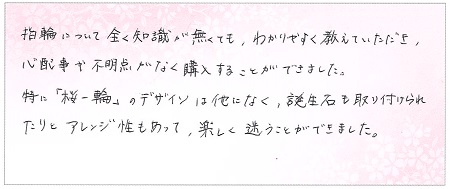 指輪について全く知識が無くても，わかりやすく教えていただき，
心配事や不明点がなく購入することができました。
特に「桜一輪」のデザインは他になく，誕生石も取り付けられ
たりとアレンジ性もあって，楽しく迷うことができました。